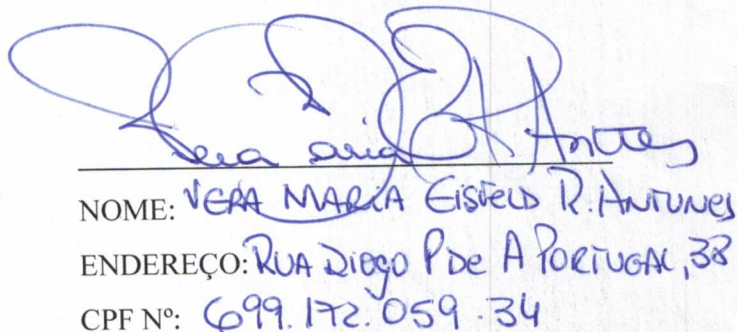 Vera Maria E R Antunes
NOME: VERA MARIA EISFELD R. ANTUNES
ENDEREÇO: RUA DIOGO P DE A PORTUGAL, 38
CPF Nº: 699.172.059-34